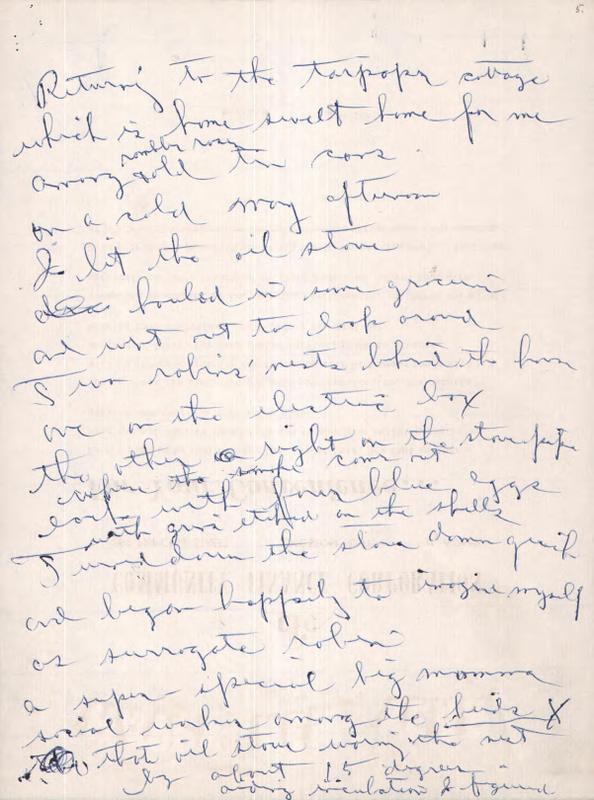 5.
Returning to the tarpaper cottage
which is home sweet home for me
rambler roses
among old tin cans
on a cold may afternoon
I lit the oil stove
hauled in some groceries
and went out to look around
Two robins' nests behind the house
one on the electric box
the other right on the stovepipe
where the smoke comes out
each with four blue eggs
with etched on the shells
I turned down the stove damn quick
and began happily to imagine myself
as surrogate robin
a super special big momma
social worker among the birds X
that oil stove warming the nest
by about 15 degrees
aiding incubation I figured